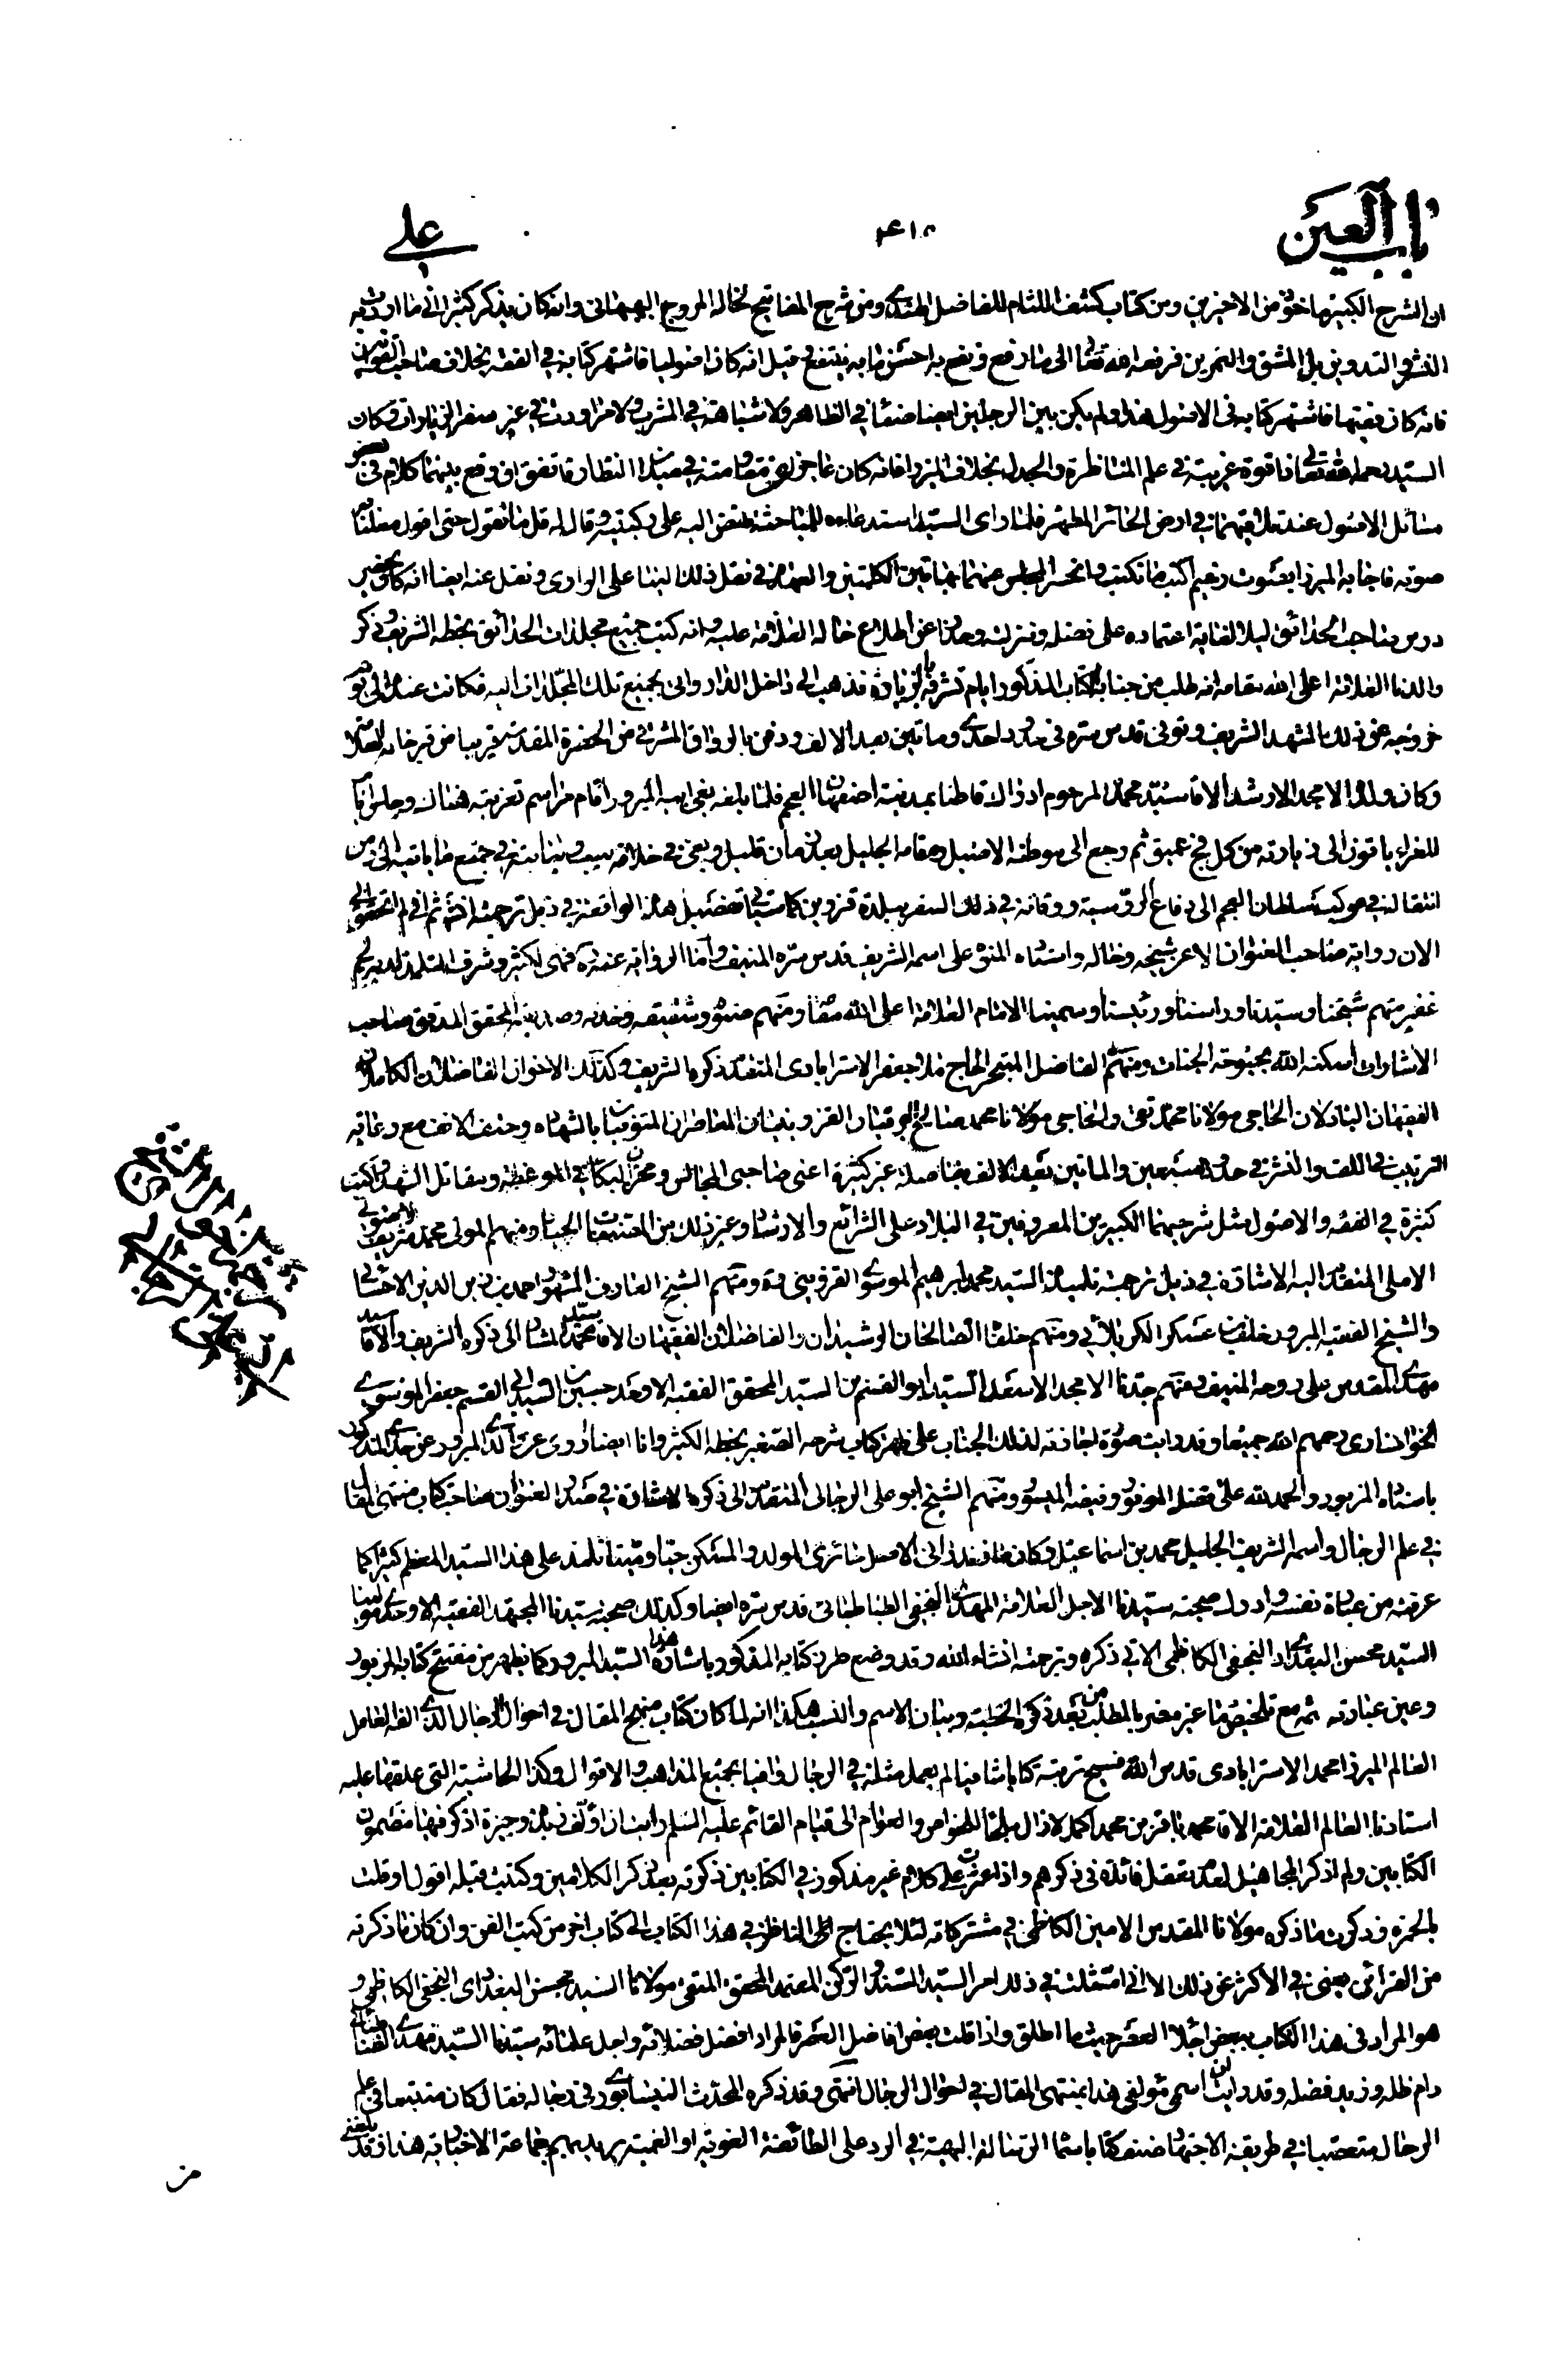 باب العين
٤١٥
علي
ان الشرح الكبير مأخوذ من الاخيرين ومن كتاب كشف اللثام للفاضل الهندي ومن شرح المفاتيح لخاله المروج البهبهاني وانه كان يذكر كثيرا اني ما اردت به
النشر والتدوين بل المشق والتمرين فرفعه الله تعالى الى ما رفع ونفع به احسن ما به ينتفع وقيل انه كان اصوليا فاشتهر كتابه في الفقه بخلاف صاحب القوانين
فانه كان فقيها فاشتهر كتابه في الاصول هذا ولم يكن بين الرجلين ايضا صفاء في الظاهر ولا شباهة في المشرب ولا مراودة في غير سفر الزيارات وكان
السيد رحمه الله تعالى ذا قوة غريبة في علم المناظرة والجدل بخلاف الميرزا فانه كان عاجزا عن مقاومته في ميدان النظار فاتفق ان وقع بينهما كلام في بعض
مسائل الاصول عند تلاقيهما في ارض الحائر المطهر فلما رأى السيد استدعاءه للمباحثة نهض اليه على ركبتيه وقال له قل ما تقول حتى اقول معلنا به
صوته فاجابه الميرزا بصوت رخيم اكتب ما تكتب وانحسر المجلس عنهما بهاتين الكلمتين والعهدة في نقل ذلك لنا على الراوي ونقل عنه ايضا انه كان يحضر
درس صاحب الحدائق ليلا لغاية اعتماده على فضله ومنزلته وحذرا عن اطلاع خاله العلامة عليه وانه كتب جميع مجلدات الحدائق بخطه الشريف وذكر
والدنا العلامة اعلى الله مقامه انه طلب من جنابه الكتاب المذكور ايام تشرفه بالزيارة فذهب الى داخل الدار واتى بجميع تلك المجلدات اليه فكانت عنده الى يوم
خروجه عن ذلك المشهد الشريف وتوفي قدس سره في حدود احدى وماتين بعد الالف ودفن بالرواق المشرقي من الحضرة المقدسة قريبا من قبر خاله العلامة
وكان ولده الامجد الارشد الاقا سيد محمد المرحوم اذ ذاك قاطنا بمدينة اصفهان العجم فلما بلغه نعى ابيه المبرور اقام مراسم تعزيته هناك وجلس ايام
للعزاء ياتون الى زيارته من كل فج عميق ثم رجع الى موطنه الاصيل ومقامه الجليل بعد زمان قليل وبقى في خلافة ابيه ونيابته في جميع ما ياتيه الى زمن
انتقاله في موكب سلطان العجم الى دفاع الروسية ووفاته في ذلك السفر ببلدة قزوين كما سيأتي تفضيل هذه الواقعة في ذيل ترجمته انشاء الله ثم اني لم اتحقق الى
الان رواية صاحب العنوان الا عن شيخه وخاله واستاده المنوه على اسمه الشريف قدس سره المنيف واما الرواية عنه ره فهي لكثير وشرف التلمذ لديه لجم
غفير منهم شيخنا وسيدنا وراسنا ورئيسنا وسمينا الامام العلامة اعلى الله مقامه ومنهم صنوه وشقيقه وخدنه وصديقه المحقق المدقق صاحب
الاشارات اسكنه الله بحبوحة الجنات ومنهم الفاضل المتبحر الحاج ملا جعفر الاسترابادي المتقدم ذكره الشريف وكذلك الاخوان الفاضلان الكاملان
الفقيهان الباذلان الحاجي مولانا محمد تقي والحاجي مولانا محمد صالح البرقانيان القزوينيان المعاصران المتوفيان بالشهادة وحتف الانف مع رعاية
الترتيب في اللف والنشر في حدود سبعين والماتين بعد الالف بفاصلة غير كثيرة اعنى صاحبي المجالس ومخزن البكاء في الموعظة ومقاتل الشهداء وكتب
كثيرة في الفقه والاصول مثل شرحيهما الكبيرين المعروفين في البلاد على الشرائع والارشاد وغير ذلك من التصنيفات الجياد ومنهم المولى محمد شريف الاصولي
الاملى المتقدم اليه الاشارة في ذيل ترجمة تلميذه السيد محمد ابرهيم الموسوي القزويني ره ومنهم الشيخ العارف المشهور احمد بن زين الدين الاحسائي
والشيخ الفقيه المبرور خلف بن عسكر الكربلائي ومنهم خلفاه الصالحان الرشيدان والفاضلان الفقيهان الاقا سيد محمد المشار الى ذكره الشريف والاقا سيد
مهدي المقدس على روحه المنيف ومنهم جدنا الامجد الاسعد السيد ابو القسم بن السيد المحقق الفقيه الاوحد حسين بن السيد ابي القسم جعفر الموسوي
الخوانساري رحمهم الله جميعا وقد رايت صورة اجازته لذلك الجناب على ظهر كتاب شرحه الصغير بخطه الكثير وانا ايضا اروى عن والدي المبرور عن جدي المذكور
باسناده المزبور والحمد لله على فضله الموفور وفيضه الميسور ومنهم الشيخ ابو على الرجالي المتقدم الى ذكره الاشارة في صدر العنوان صاحب كتاب منتهى المقال
في علم الرجال واسمه الشريف الجليل محمد بن اسماعيل وكان مازندراني الاصل حائري المولد والمسكن حيا وميتا تلمذ على هذا السيد المعظم كثيرا كما
عرفته من عبارة نفسه وادرك صحبة سيدنا الاجل العلامة المهدي النجفي الطباطبائي قدس سره ايضا وكذلك صحبة سيدنا المجتهد الفقيه الاوحد مولينا
السيد محسن البغدادي النجفي الكاظمي الاتي ذكره وترجمته انشاء الله وقد وضع طرز كتابه المذكور باشارة هذا السيد المبرور كما يظهر من مفتتح كتابه المزبور
وعين عبارته ثمه مع تلخيص ما غير مضر بالمطلب من بعد ذكره الخطبة وبيان الاسم والنسب هكذا انه لما كان كتاب منهج المقال في احوال الرجال الذي الفه الفاضل
العالم الميرزا محمد الاسترابادي قدس الله فسيح تربته كتابا شافيا لم يعمل مثله في الرجال وافيا بجميع المذاهب والاقوال وكذا الحاشية التي علقها عليه
استادنا العالم العلامة الاقا محمد باقر بن محمد اكمل لا زال ملجأ للخواص والعوام الى قيام القائم عليه السلم رايت ان اؤلف نبذة وجيزة اذكر فيها مضمون
الكتابين ولم اذكر المجاهيل لعدم تعقل فائدة في ذكرهم واذا عثرت على كلام غير مذكور في الكتابين ذكرته بعد ذكر الكلامين وكتبت قبله اقول او قلت
بالحمرة وذكرت ما ذكره مولانا المقدس الامين الكاظمي في مشتركاته لئلا يحتاج الناظر في هذا الكتاب الى كتاب اخر من كتب الفن وان كان ما ذكرته
من القرائن يغنى في الاكثر عن ذلك الا اني امتثلت في ذلك امر السيد السند والركن المعتمد المحقق المتقى مولانا السيد محسن البغدادي النجفي الكاظمي و
هو المراد في هذا الكتاب ببعض اجلاء العصر حيث ما اطلق واذا قلت بعض افاضل العصر فالمراد افضل فضلائه واجل علمائه سيدنا السيد مهدي الطباطبائي
دام ظله وزيد فضله وقد رايت ان اسمى مؤلفى هذا بمنتهى المقال في احوال الرجال انتهى وقد ذكره المحدث النيسابوري في رجاله فقال كان متتبعا في علم
الرجال متعصبا في طريقة الاجتهاد صنف كتابا سماه الرسالة البهية في الرد على الطائفة الغوية او الغبية يريد بهم جماعة الاخبارية هذا وقد بلغني
من